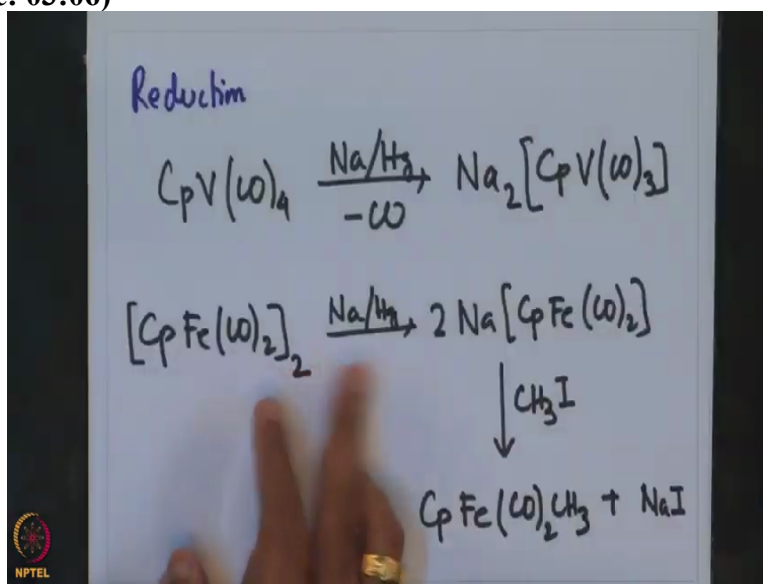 c: 05:06)
Reduction
CpV(CO)₄ Na/Hg → -CO Na₂[CpV(CO)₃]
[CpFe(CO)₂]₂ Na/Hg → 2 Na[CpFe(CO)₂]
↓ CH₃I
CpFe(CO)₂CH₃ + NaI
NPTEL